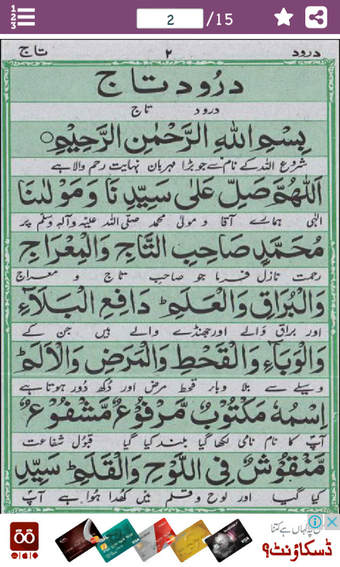 2 /15
درود ۲ تاج
درود تاج
درود تاج
بِسْمِ اللهِ الرَّحْمٰنِ الرَّحِيْمِ
شروع اللہ کے نام سے جو بڑا مہربان نہایت رحم والا ہے
اَللّٰهُمَّ صَلِّ عَلٰى سَيِّدِنَا وَمَوْلٰنَا
الٰہی ہمارے آقا و مولیٰ محمد صلی اللہ علیہ وآلہ وسلم پر
مُحَمَّدٍ صَاحِبِ التَّاجِ وَالْمِعْرَاجِ
رحمت نازل فرما جو صاحب تاج و معراج
وَالْبُرَاقِ وَالْعَلَمِ ؕ دَافِعِ الْبَلَآءِ
اور براق والے اور جھنڈے والے ہیں جن کے
وَالْوَبَآءِ وَالْقَحْطِ وَالْمَرَضِ وَالْاَلَمِ ؕ
وسیلے سے بلا وباء قحط مرض اور دکھ دُور ہوتا ہے
اِسْمُهٗ مَكْتُوْبٌ مَّرْفُوْعٌ مَّشْفُوْعٌ
آپ کا نام نامی لکھا گیا بلند کیا گیا قبول شفاعت
مَّنْقُوْشٌ فِى اللَّوْحِ وَالْقَلَمِ ؕ سَيِّدِ
کیا گیا اور لوح و قلم میں کھدا ہوا ہے آپ
ڈسکاؤنٹ؟